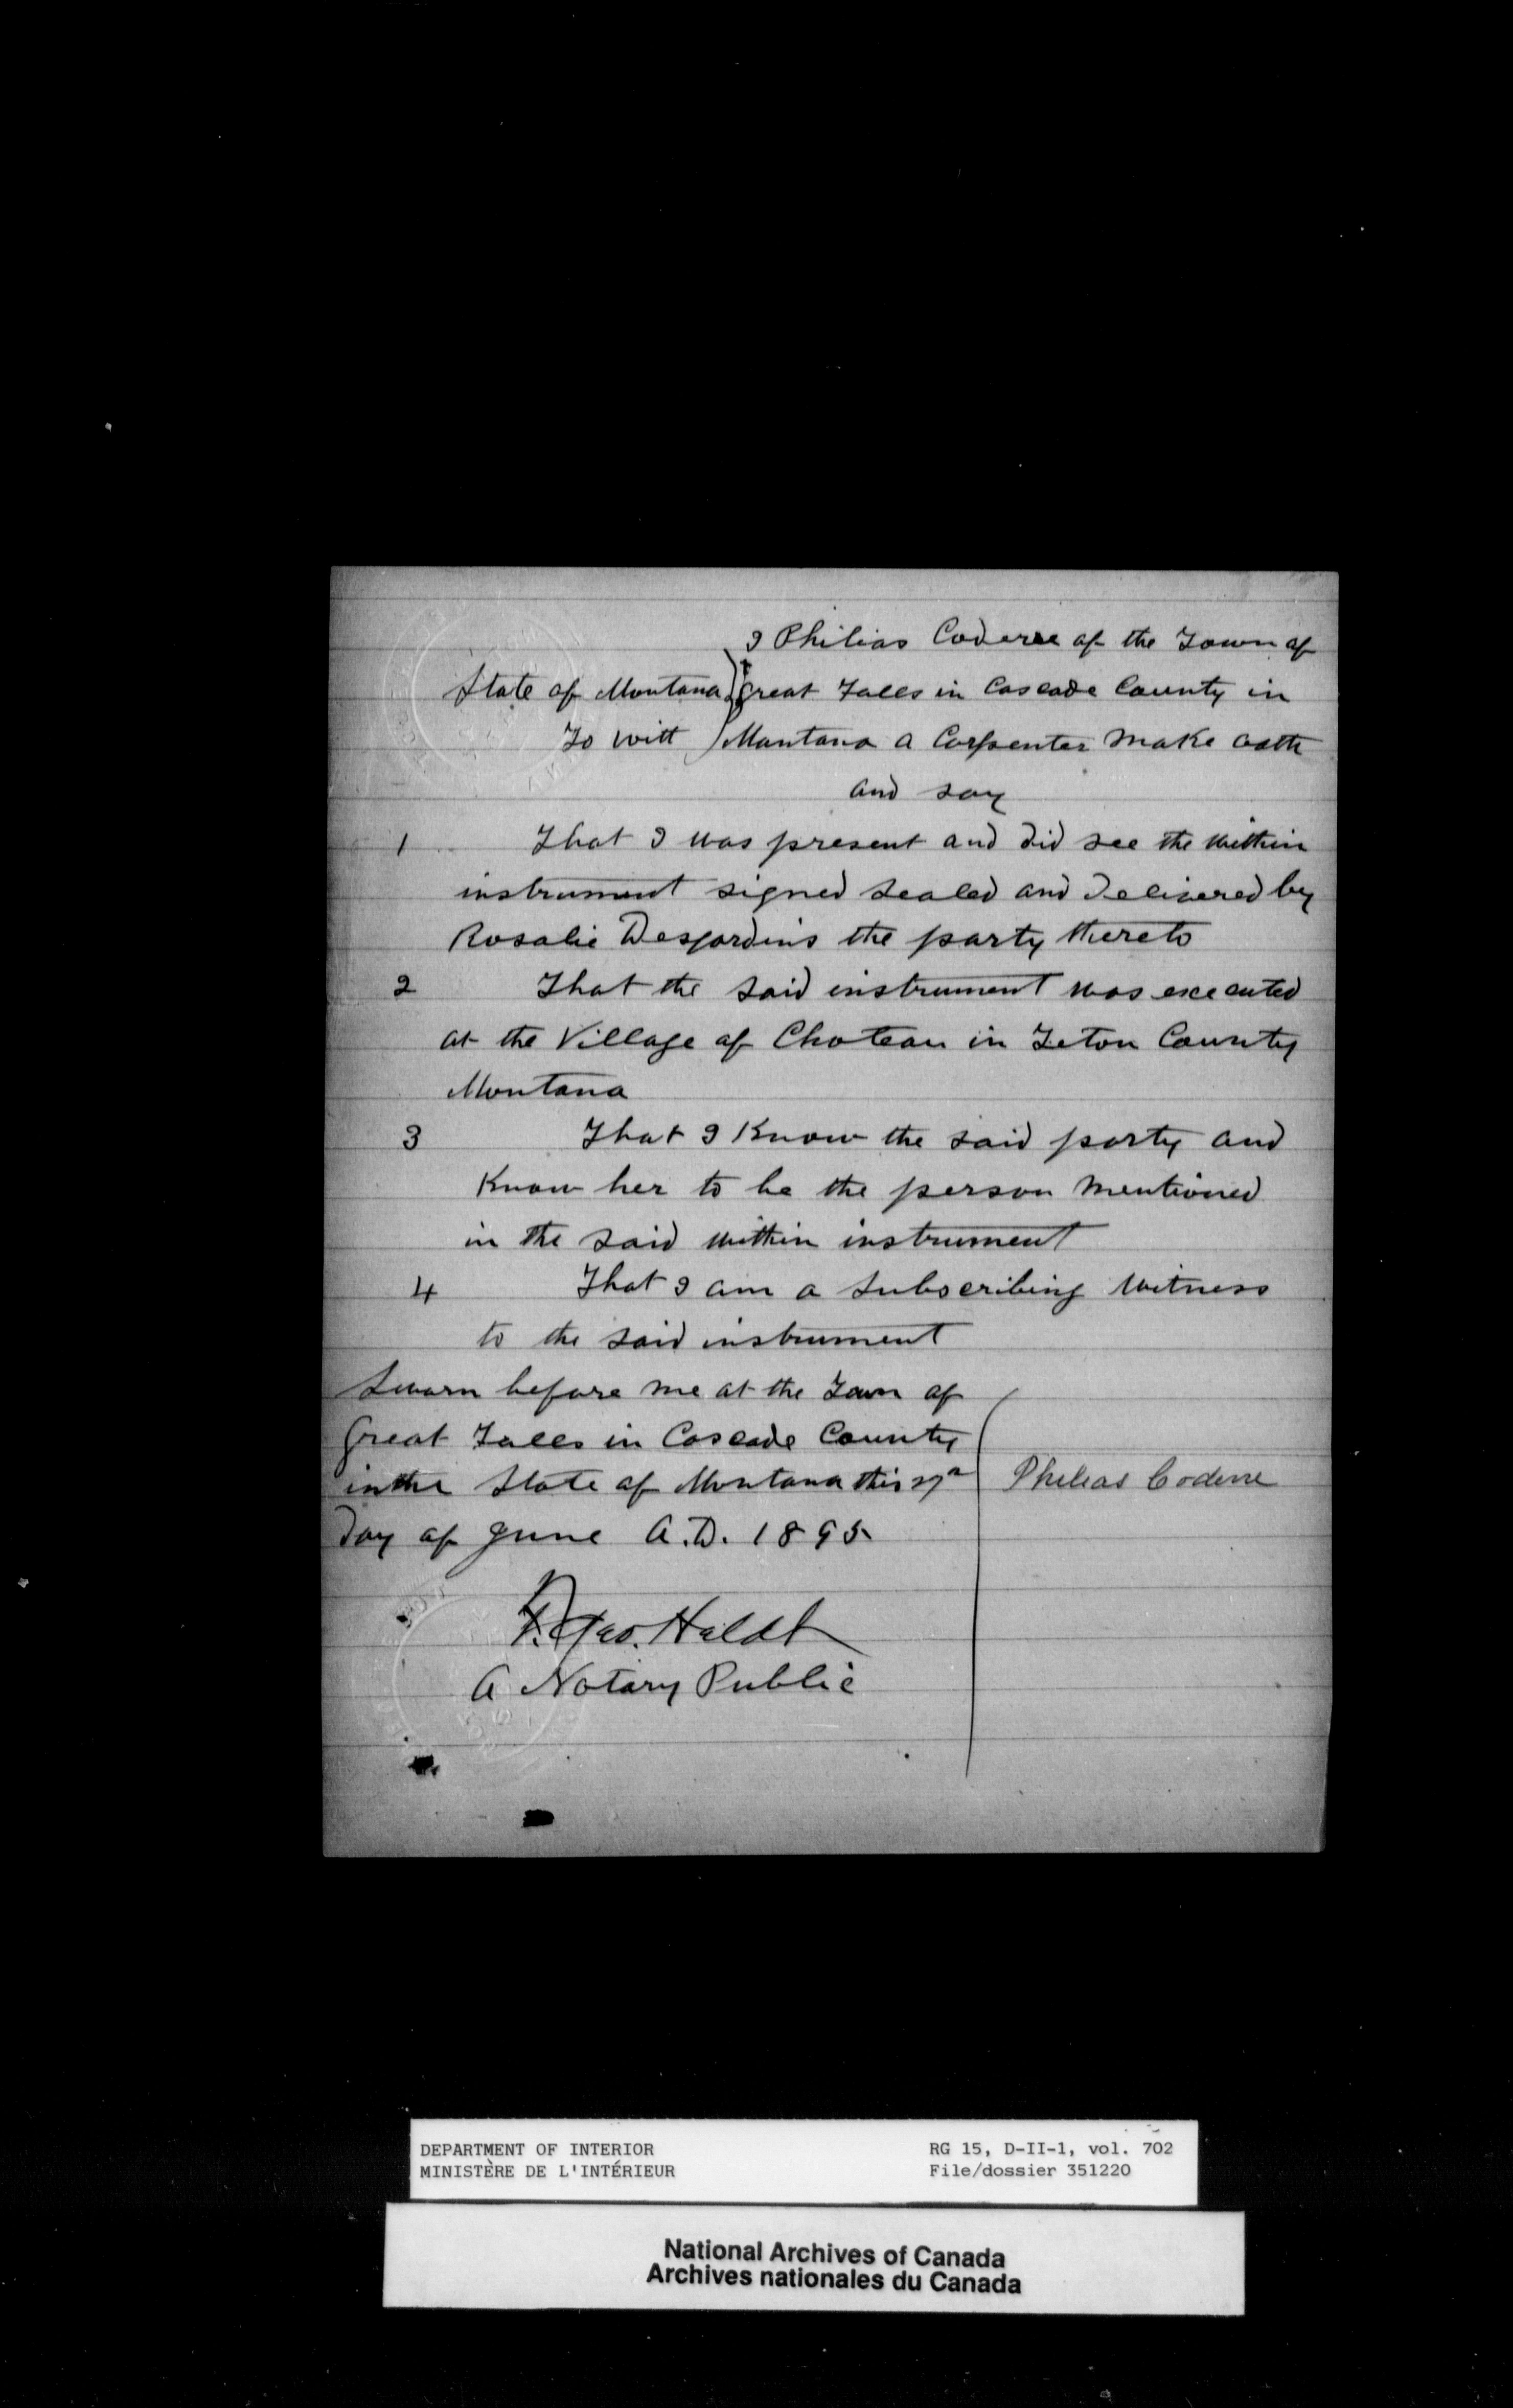 I Philias Coderre of the Town of
State of Montana Great Falls in Cascade County in
To Witt Montana a Carpenter Make oath
and say
1 That I was present and did see the within
instrument signed sealed and delivered by
Rosalie Desjardins the party thereto
2 That the said instrument was executed
at the Village of Choteau in Teton County
Montana
3 That I Know the said party and
Know her to be the person Mentioned
in the said within instrument
4 That I am a subscribing Witness
to the said instrument
Sworn before me at the Town of
Great Falls in Cascade County
in the State of Montana this
Day of June A.D. 1895
Phileas Coderre
Geo. Heldt
A Notary Public
DEPARTMENT OF INTERIOR
MINISTÈRE DE L'INTÉRIEUR
RG 15, D-II-1, vol. 702
File/dossier 351220
National Archives of Canada
Archives nationales du Canada